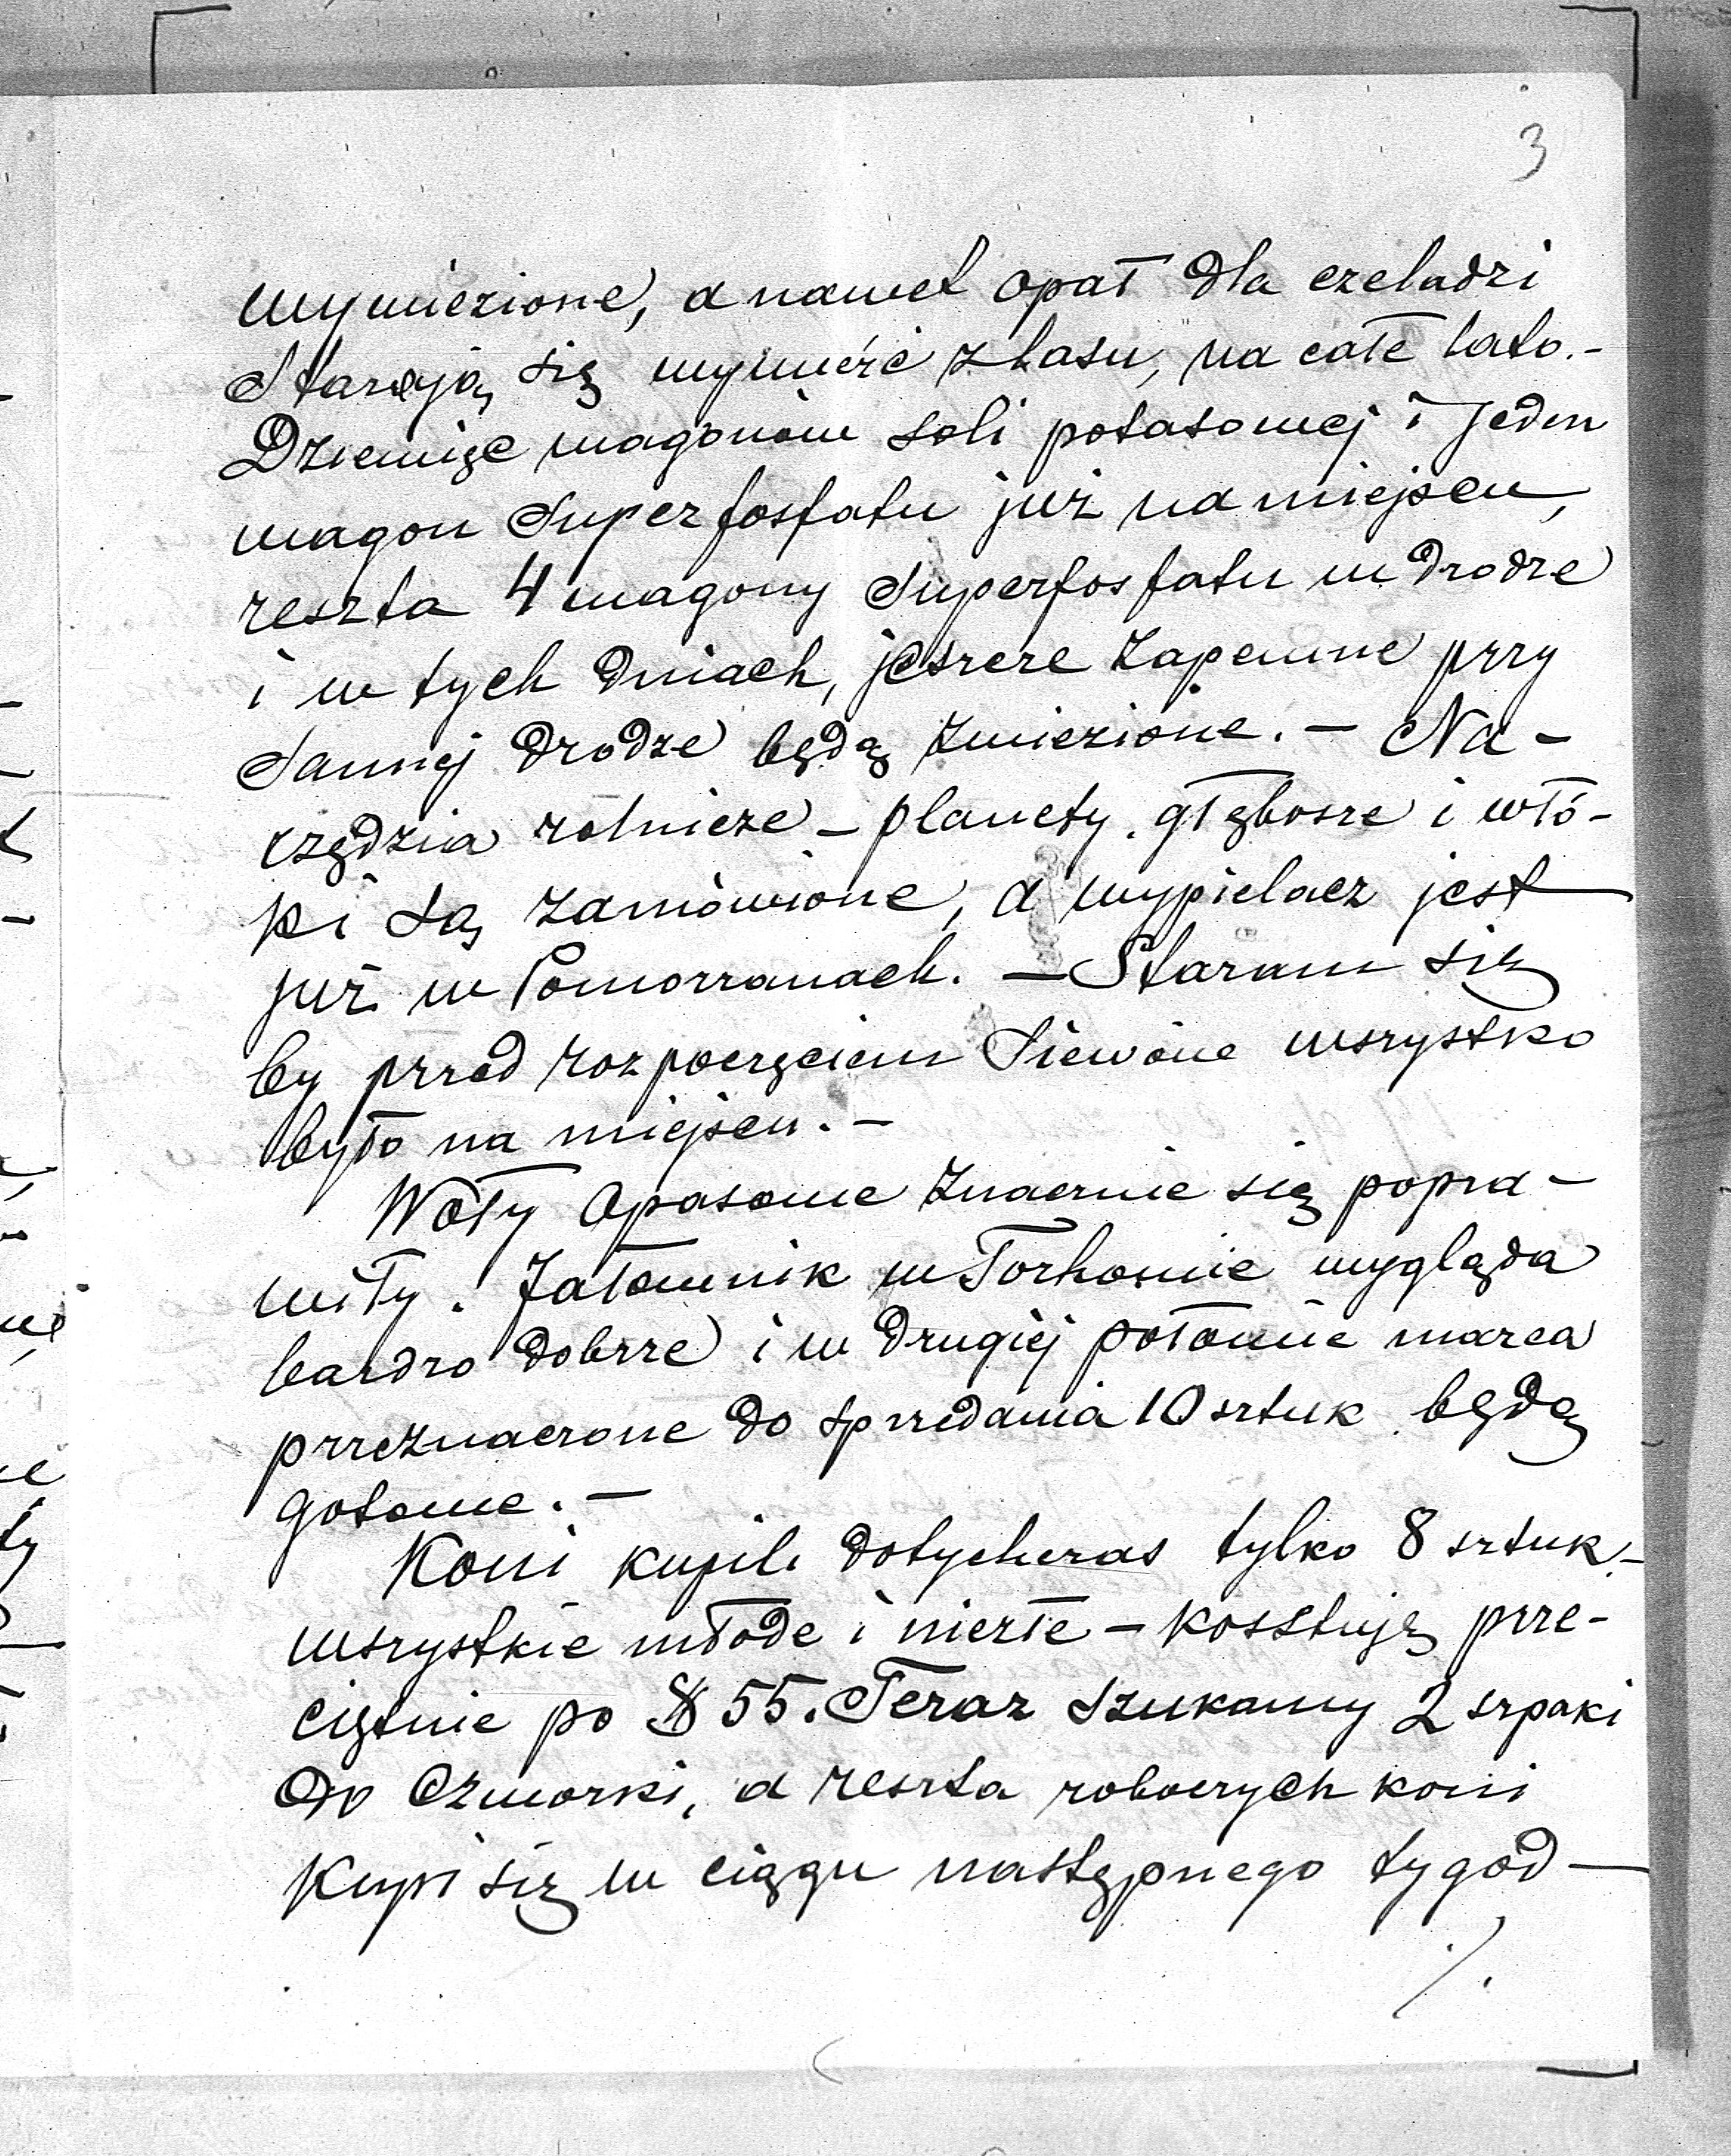 3
wywiezione, a nawet opał dla czeladzi
starają się wywieźć z lasu, na całe lato.-
Dziewięć wagonów soli potasowej i jeden
wagon superfosfatu już na miejscu,
reszta 4 wagony superfosfatu w drodze
i w tych dniach, jeszcze zapewne przy
sannej drodze będą zwiezione. - Na-
rzędzia rolnicze - planety, głębosze i włó-
ki są zamówione, a wypielacz jest
już w Pomorzanach. - Staram się
by przed rozpoczęciem siewów wszystko
było na miejscu. -
Woły opasowe znacznie się popra-
wiły. Jałownik w Torhowie wygląda
bardzo dobrze i w drugiej połowie marca
przeznaczone do sprzedania 10 sztuk będą
gotowe. -
Koni kupili dotychczas tylko 8 sztuk -
wszystkie młode i niezłe - kosztują prze-
ciętnie po $ 55. Teraz szukamy 2 szpaki
do czwórki, a reszta roboczych koni
kupi się w ciągu następnego tygod-
./.